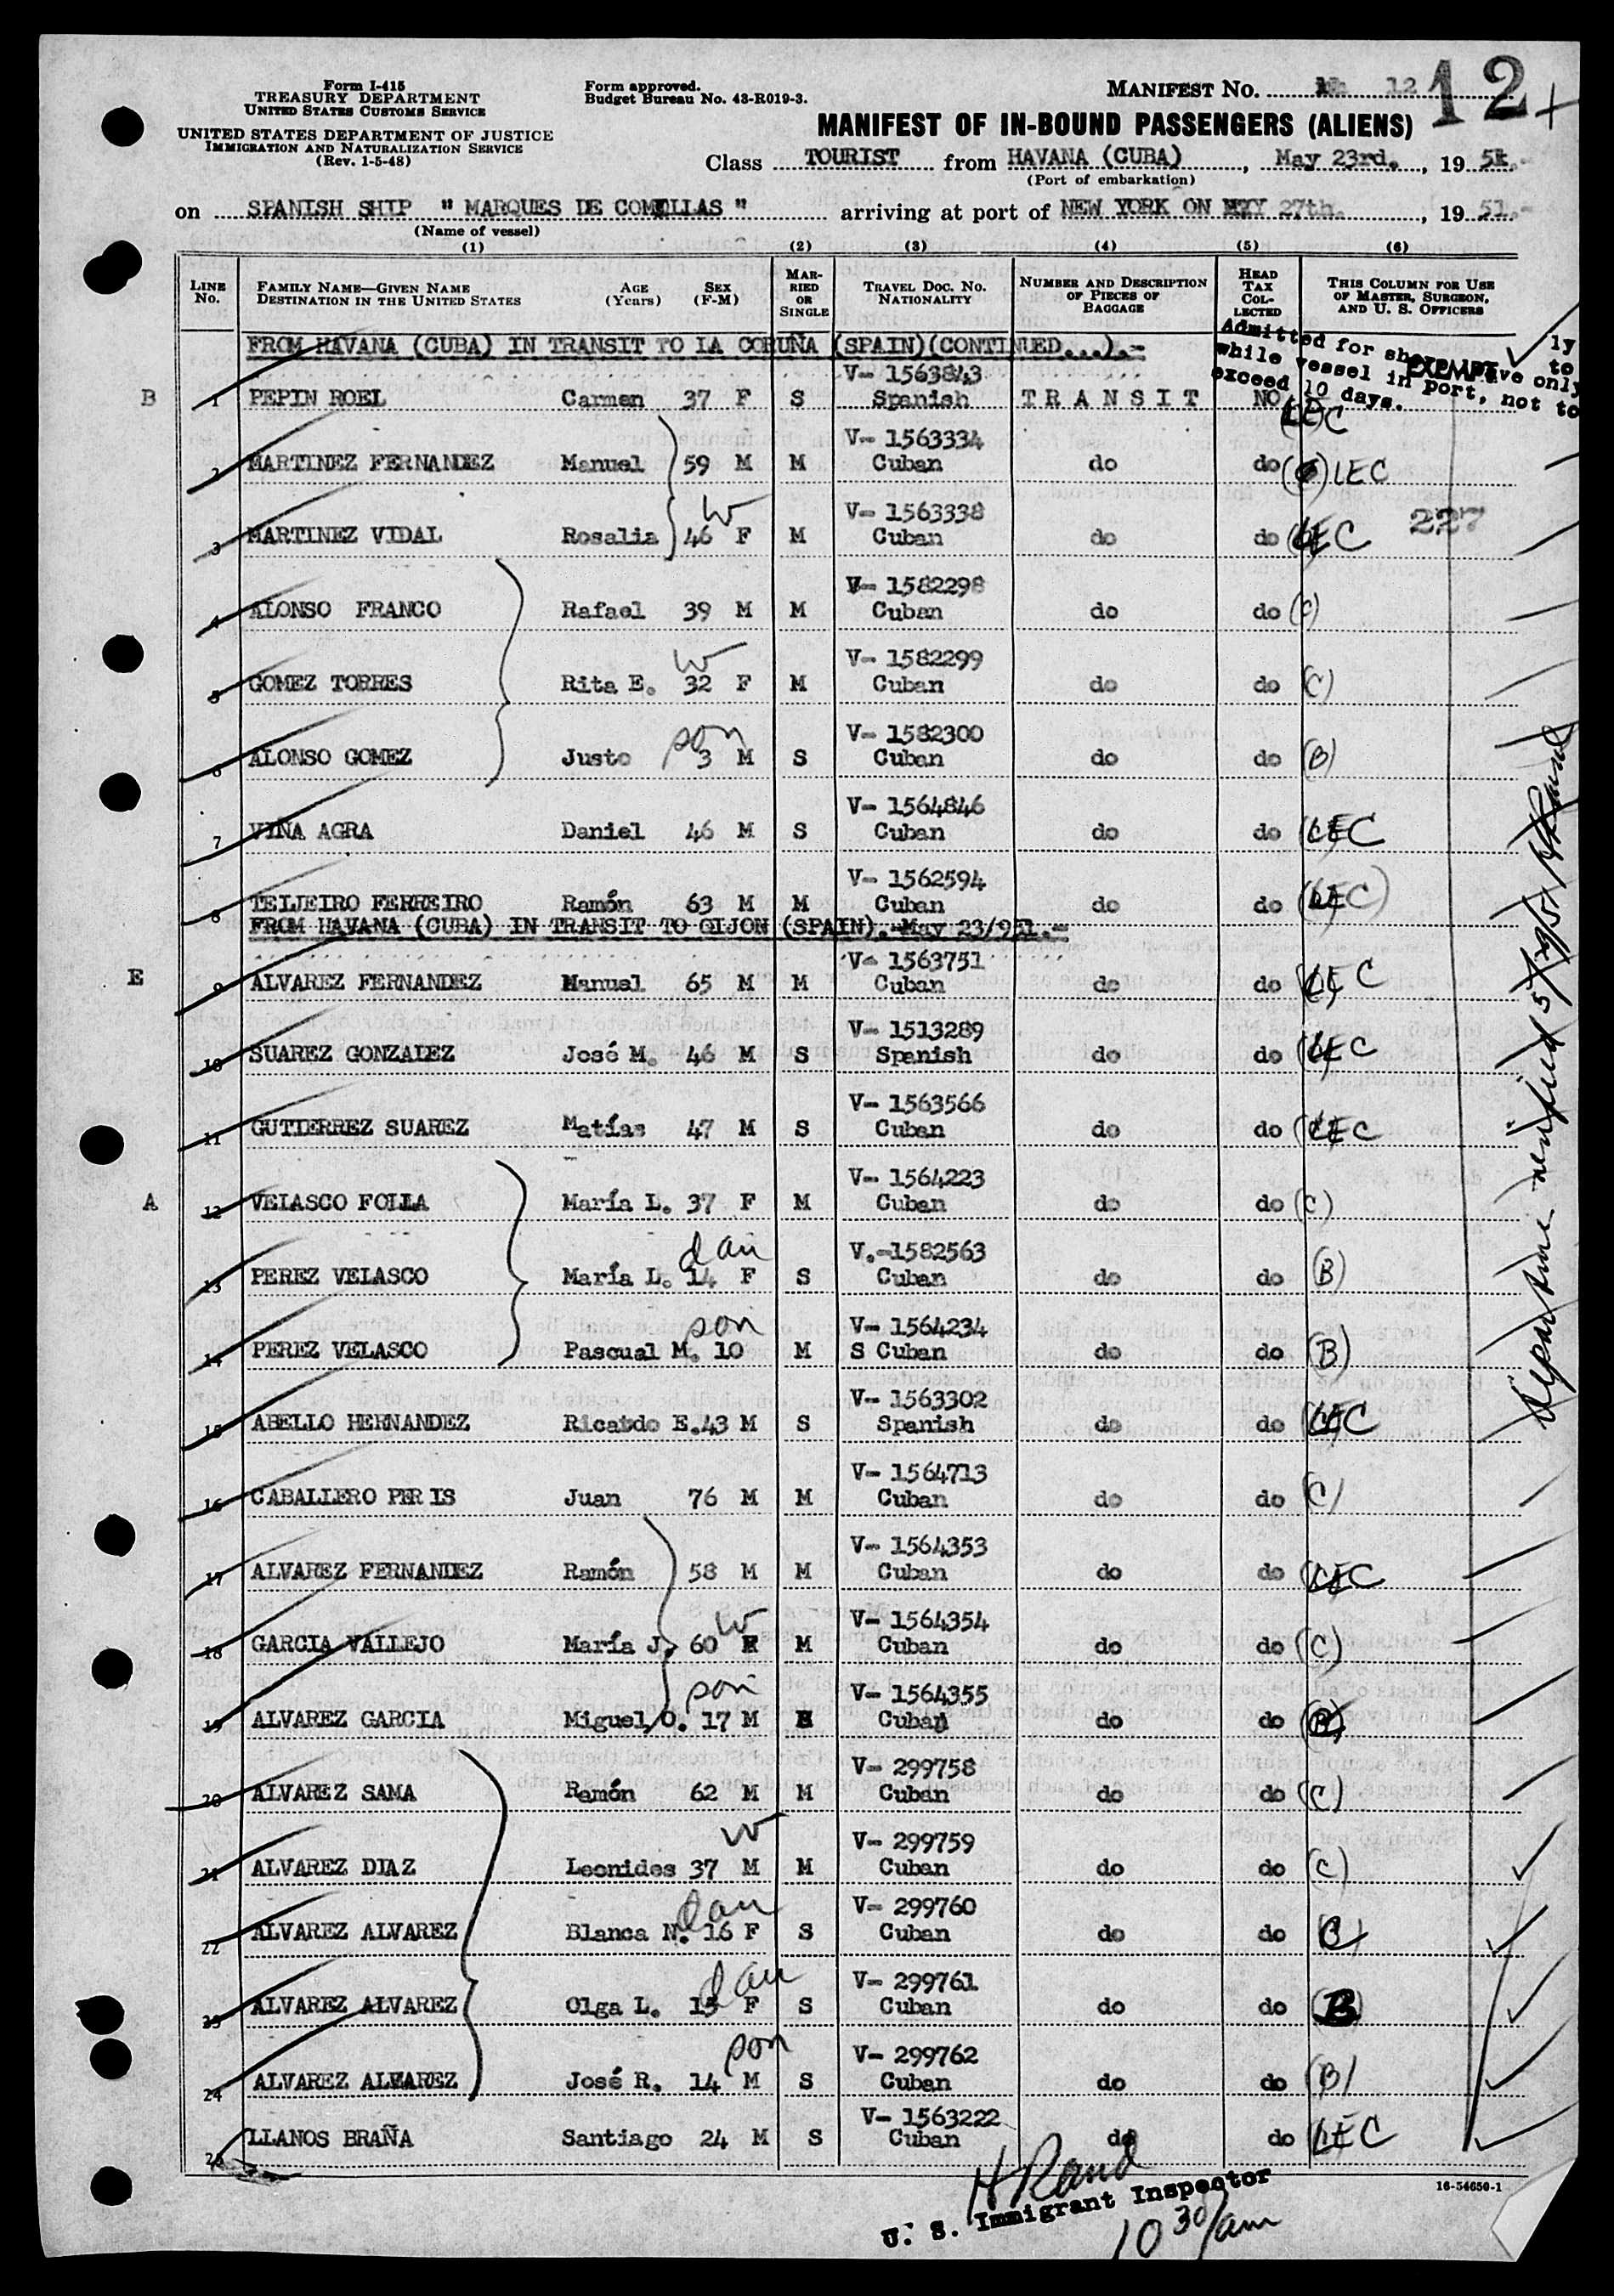 Form I-415
TREASURY DEPARTMENT
UNITED STATES CUSTOMS SERVICE
UNITED STATES DEPARTMENT OF JUSTICE
IMMIGRATION AND NATURALIZATION SERVICE
(Rev. 1-5-48)
Form approved.
Budget Bureau No. 43-R019-3.
MANIFEST No. 12 12 +
MANIFEST OF IN-BOUND PASSENGERS (ALIENS)
Class TOURIST from HAVANA (CUBA), May 23rd., 19 51.-
(Port of embarkation)
on SPANISH SHIP " MARQUES DE COMILLAS " arriving at port of NEW YORK ON MAY 27th., 19 51.-
(Name of vessel)
(1) (2) (3) (4) (5) (6)
LINE No. FAMILY NAME—GIVEN NAME DESTINATION IN THE UNITED STATES AGE (Years) SEX (F-M) MARRIED OR SINGLE TRAVEL DOC. No. NATIONALITY NUMBER AND DESCRIPTION OF PIECES OF BAGGAGE HEAD TAX COLLECTED THIS COLUMN FOR USE OF MASTER, SURGEON, AND U. S. OFFICERS
FROM HAVANA (CUBA) IN TRANSIT TO LA CORUÑA (SPAIN)(CONTINUED...).-
Admitted for shore leave only
while vessel in port, not to
exceed 10 days.
EXEMPT
V- 1563843
B 1 PEPIN ROEL Carmen 37 F S Spanish T R A N S I T NO LEC
V- 1563334
2 MARTINEZ FERNANDEZ Manuel 59 M M Cuban do do LEC
V- 1563338 227
3 MARTINEZ VIDAL Rosalia W 46 F M Cuban do do LEC
V- 1582298
4 ALONSO FRANCO Rafael 39 M M Cuban do do (C)
V- 1582299
5 GOMEZ TORRES Rita E. W 32 F M Cuban do do (C)
V- 1582300
6 ALONSO GOMEZ Justo son 3 M S Cuban do do (B)
V- 1564846
7 VIÑA AGRA Daniel 46 M S Cuban do do LEC
V- 1562594
8 TEIJEIRO FERREIRO Ramón 63 M M Cuban do do (LEC)
FROM HAVANA (CUBA) IN TRANSIT TO GIJON (SPAIN).-May 23/951.-
V- 1563751
E 9 ALVAREZ FERNANDEZ Manuel 65 M M Cuban do do LEC
V- 1513289
10 SUAREZ GONZALEZ José M. 46 M S Spanish do do LEC
V- 1563566
11 GUTIERREZ SUAREZ Matías 47 M S Cuban do do LEC
V- 1564223
A 12 VELASCO FOLLA María L. 37 F M Cuban do do (C)
V.-1582563
13 PEREZ VELASCO María L. dau 14 F S Cuban do do (B)
V- 1564234
14 PEREZ VELASCO Pascual M. son 10 M S Cuban do do (B)
V- 1563302
15 ABELLO HERNANDEZ Ricardo E.43 M S Spanish do do LEC
V- 1564713
16 CABALLERO PERIS Juan 76 M M Cuban do do (C)
V- 1564353
17 ALVAREZ FERNANDEZ Ramón 58 M M Cuban do do LEC
V- 1564354
18 GARCIA VALLEJO María J. W 60 F M Cuban do do (C)
V- 1564355
19 ALVAREZ GARCIA Miguel O. son 17 M Cuban do do (B)
V- 299758
20 ALVAREZ SAMA Ramón 62 M M Cuban do do (C)
V- 299759
21 ALVAREZ DIAZ Leonides W 37 M M Cuban do do (C)
V- 299760
22 ALVAREZ ALVAREZ Blanca N. dau 16 F S Cuban do do (C)
V- 299761
23 ALVAREZ ALVAREZ Olga L. dau 15 F S Cuban do do (B)
V- 299762
24 ALVAREZ ALVAREZ José R. son 14 M S Cuban do do (B)
V- 1563222
25 LLANOS BRAÑA Santiago 24 M S Cuban do do LEC
Departure verified 5/29/51 H Rand
H Rand
U. S. Immigrant Inspector
10 30/am
16-54650-1